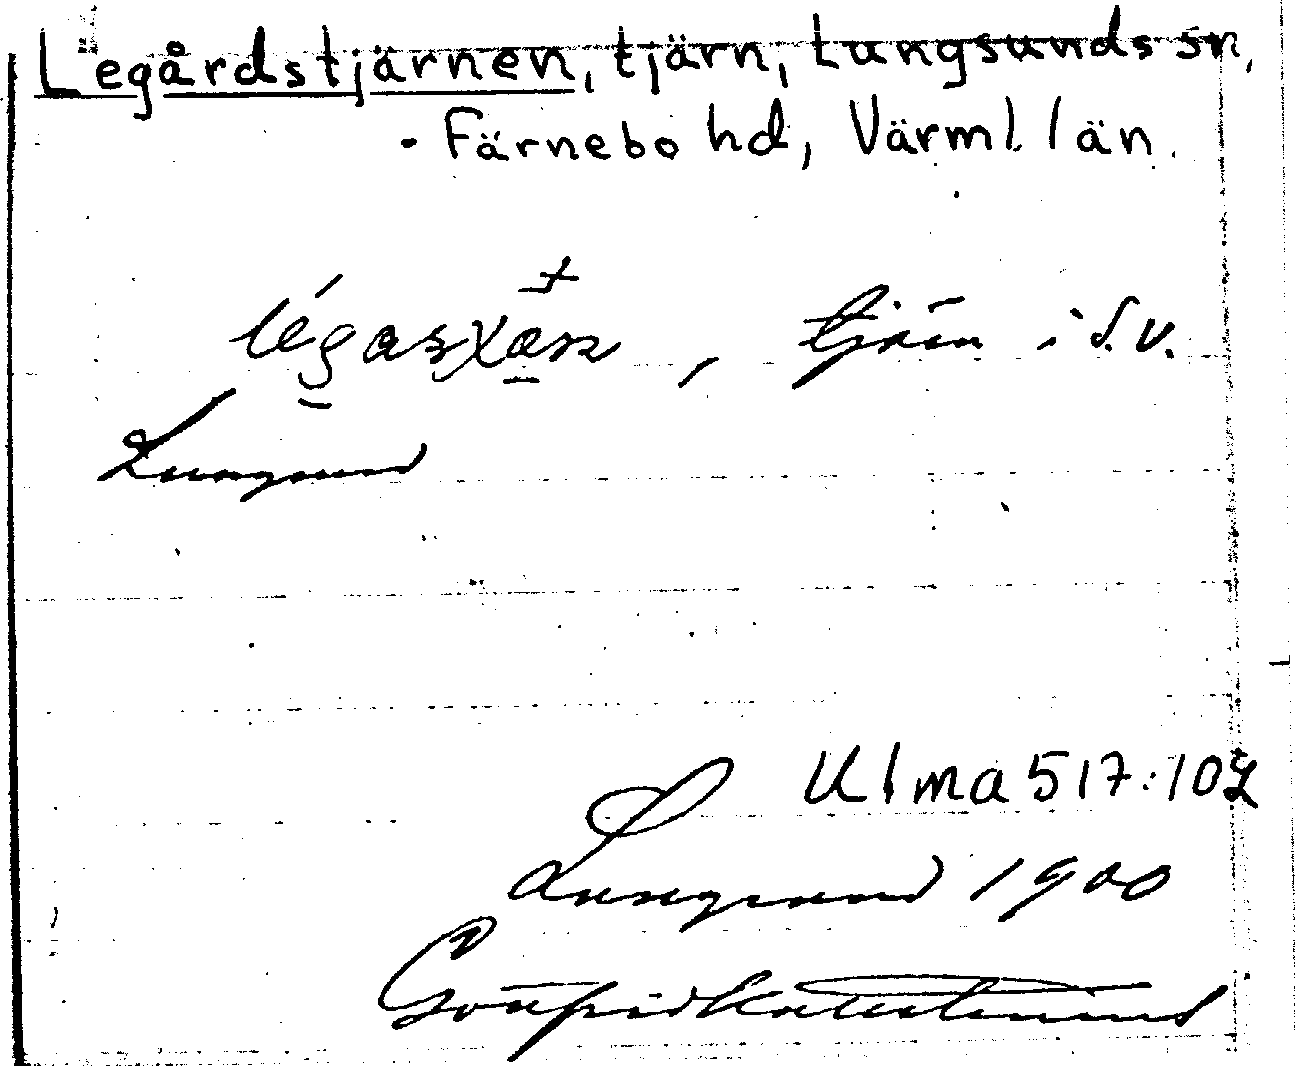 Legårdstjärnen, tjärn, Lungsunds sn,
Färnebo hd, Värml. län.
, tjärn i s.v.
Lungsund
Ulma 517:102
Lungsund 1900
Gottfrid Kallstenius